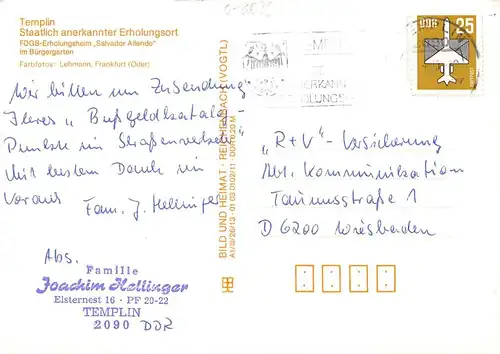 Templin
Staatlich anerkannter Erholungsort
FDGB-Erholungsheim „Salvador Allende"
im Bürgergarten
Farbfotos: Lehmann, Frankfurt (Oder)
DDR 25
Wir bitten um Zusendung
Ihres „Bußgeldkatalo-
Punkte im Straßenverkehr"
Mit bestem Dank im
Voraus
Fam. J. Hellinger
Abs.
Familie
Joachim Hellinger
Elsternest 16 · PF 20-22
TEMPLIN
2090 DDR
BILD UND HEIMAT · REICHENBACH (VOGTL)
A1/B/26/13 · 01 03 01 02/11 · DDR 0,20 M
„R+V"-Versicherung
Abt. Kommunikation
Taunusstraße 1
D 6200 Wiesbaden